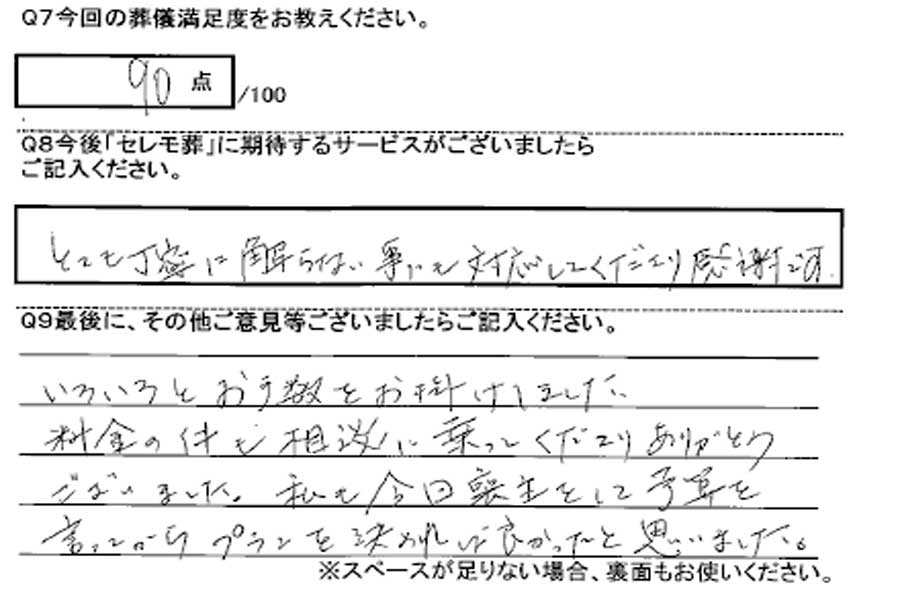 Q7今回の葬儀満足度をお教えください。
90 点 /100
Q8今後「セレモ葬」に期待するサービスがございましたら
ご記入ください。
とても丁寧に解らない事にも対応してくださり感謝です。
Q9最後に、その他ご意見等ございましたらご記入ください。
いろいろとお手数をお掛けしました。
料金の件も相談に乗ってくださりありがとう
ございました。私も今回喪主をして予算を
言ってからプランを決めれば良かったと思いました。
※スペースが足りない場合、裏面もお使いください。